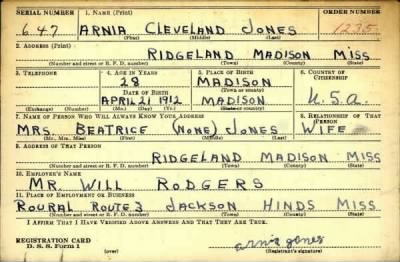 SERIAL NUMBER 1. NAME (Print) ORDER NUMBER
647 ARNIA CLEVELAND JONES 1235
(First) (Middle) (Last)
2. ADDRESS (Print)
RIDGELAND MADISON MISS
(Number and street or R. F. D. number) (Town) (County) (State)
3. TELEPHONE 4. AGE IN YEARS 5. PLACE OF BIRTH 6. COUNTRY OF CITIZENSHIP
28 MADISON
DATE OF BIRTH (Town or county)
APRIL 21 1912 MADISON U.S.A.
(Exchange) (Number) (Mo.) (Day) (Yr.) (State or country)
7. NAME OF PERSON WHO WILL ALWAYS KNOW YOUR ADDRESS 8. RELATIONSHIP OF THAT PERSON
MRS. BEATRICE (NONE) JONES WIFE
(Mr., Mrs., Miss) (First) (Middle) (Last)
9. ADDRESS OF THAT PERSON
RIDGELAND MADISON MISS
(Number and street or R. F. D. number) (Town) (County) (State)
10. EMPLOYER'S NAME
MR. WILL RODGERS
11. PLACE OF EMPLOYMENT OR BUSINESS
ROURAL ROUTE 3 JACKSON HINDS MISS
(Number and street or R. F. D. number) (Town) (County) (State)
I AFFIRM THAT I HAVE VERIFIED ABOVE ANSWERS AND THAT THEY ARE TRUE.
REGISTRATION CARD
D. S. S. Form 1 (over) arnia jones
(Registrant's signature)